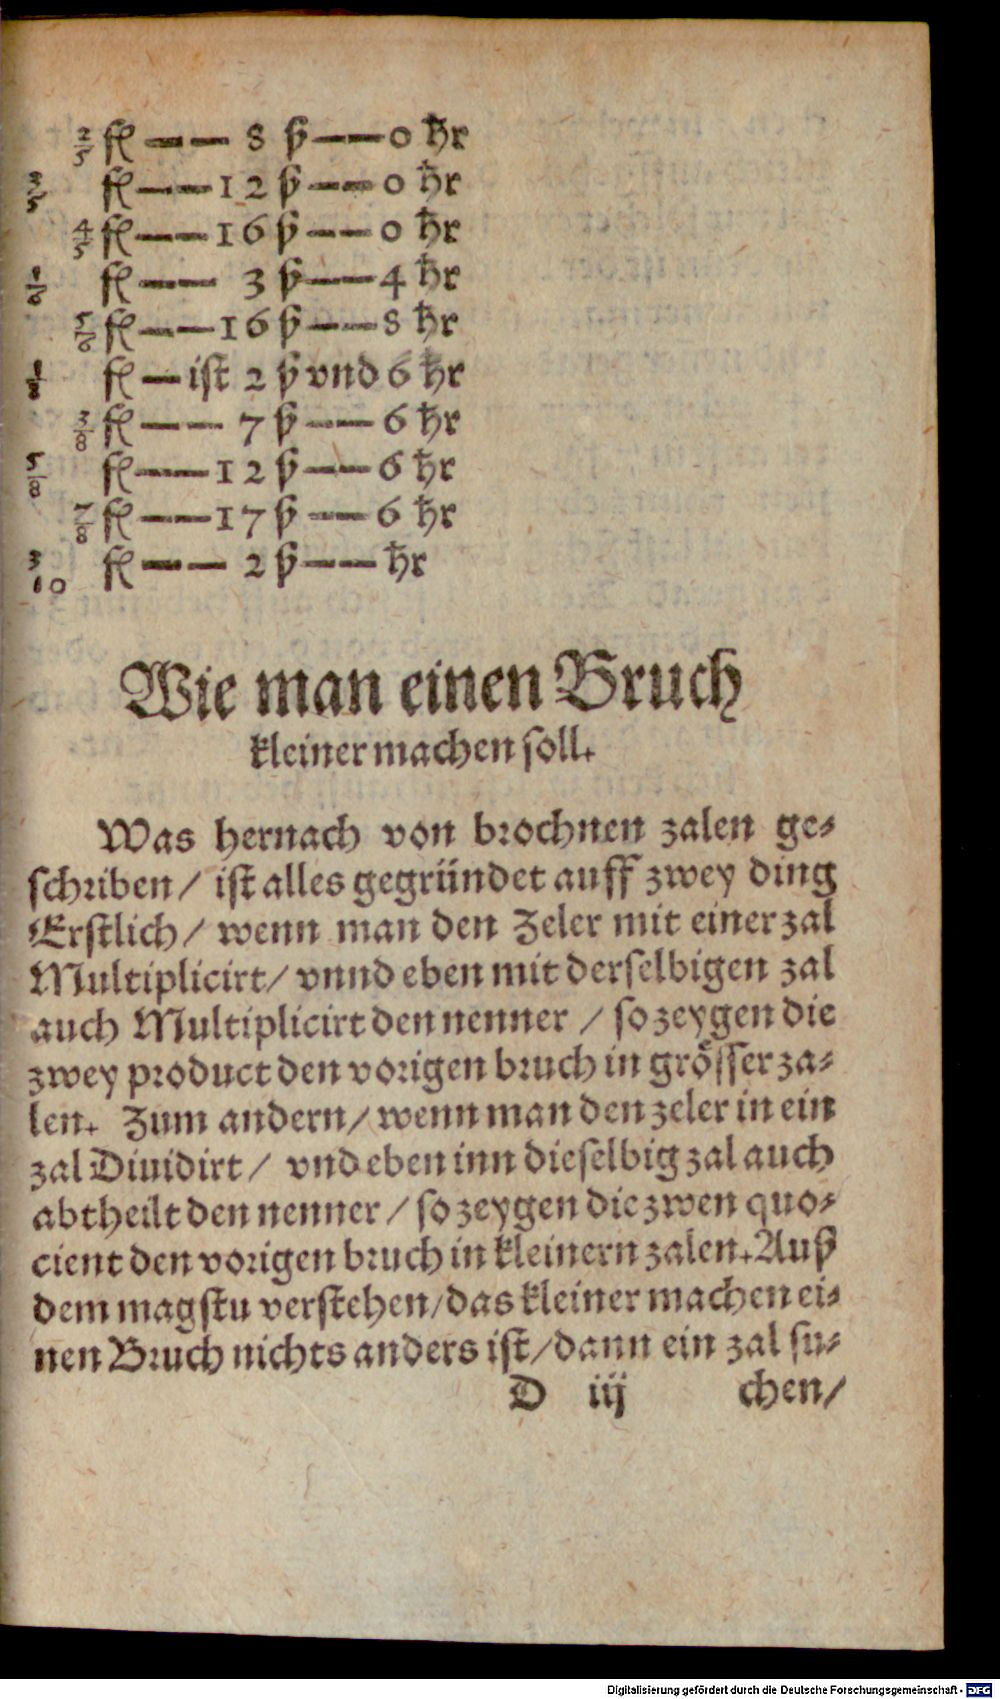 2/5 fl —— 8 ß —— 0 hr
3/5 fl —— 12 ß —— 0 hr
4/5 fl —— 16 ß —— 0 hr
1/6 fl —— 3 ß —— 4 hr
5/6 fl —— 16 ß —— 8 hr
1/8 fl — ist 2 ß vnd 6 hr
3/8 fl —— 7 ß —— 6 hr
5/8 fl —— 12 ß —— 6 hr
7/8 fl —— 17 ß —— 6 hr
3/10 fl —— 2 ß —— hr
Wie man einen Bruch
kleiner machen soll.
Was hernach von brochnen zalen ge-
schriben / ist alles gegründet auff zwey ding
Erstlich / wenn man den Zeler mit einer zal
Multiplicirt / vnnd eben mit derselbigen zal
auch Multiplicirt den nenner / so zeygen die
zwey product den vorigen bruch in grösser za-
len. Zum andern / wenn man den zeler in ein
zal Diuidirt / vnd eben inn dieselbig zal auch
abtheilt den nenner / so zeygen die zwen quo-
cient den vorigen bruch in kleinern zalen. Auß
dem magstu verstehen / das kleiner machen ei-
nen Bruch nichts anders ist / dann ein zal su-
D iij chen /
Digitalisierung gefördert durch die Deutsche Forschungsgemeinschaft - DFG